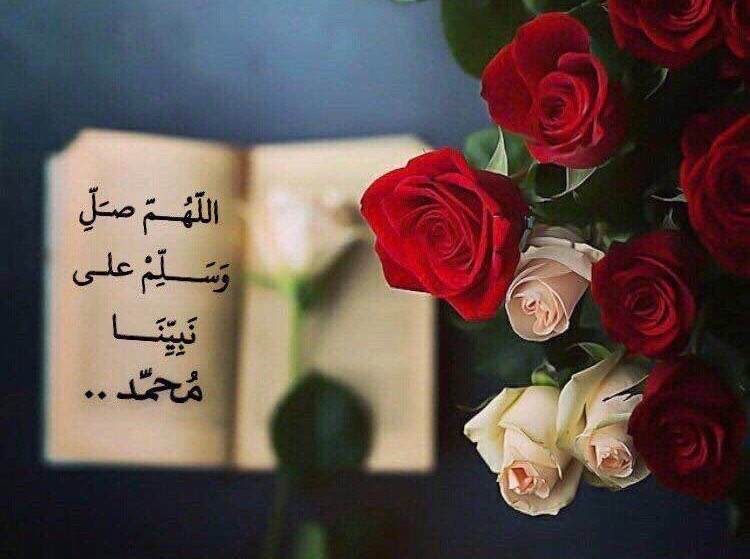 اللّهُـمّ صـَلِّ
وَسَـلِّمْ علـى
نَبِيِّنَــا
مُحمّد ..